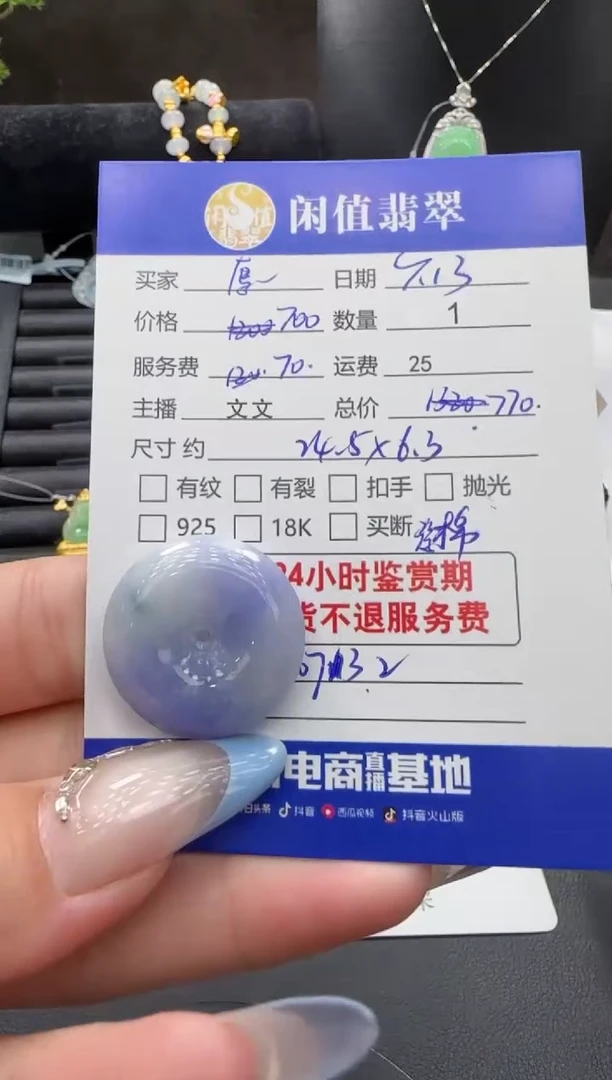 闲值翡翠
闲值翡翠
买家 厚 日期 5.13
价格 1200 700 数量 1
服务费 120. 70. 运费 25
主播 文文 总价 1320 770.
尺寸约 24.5×6.3
有纹 有裂 扣手 抛光
925 18K 买断
棉
24小时鉴赏期
货不退服务费
电商直播基地
日头条 抖音 西瓜视频 抖音火山版